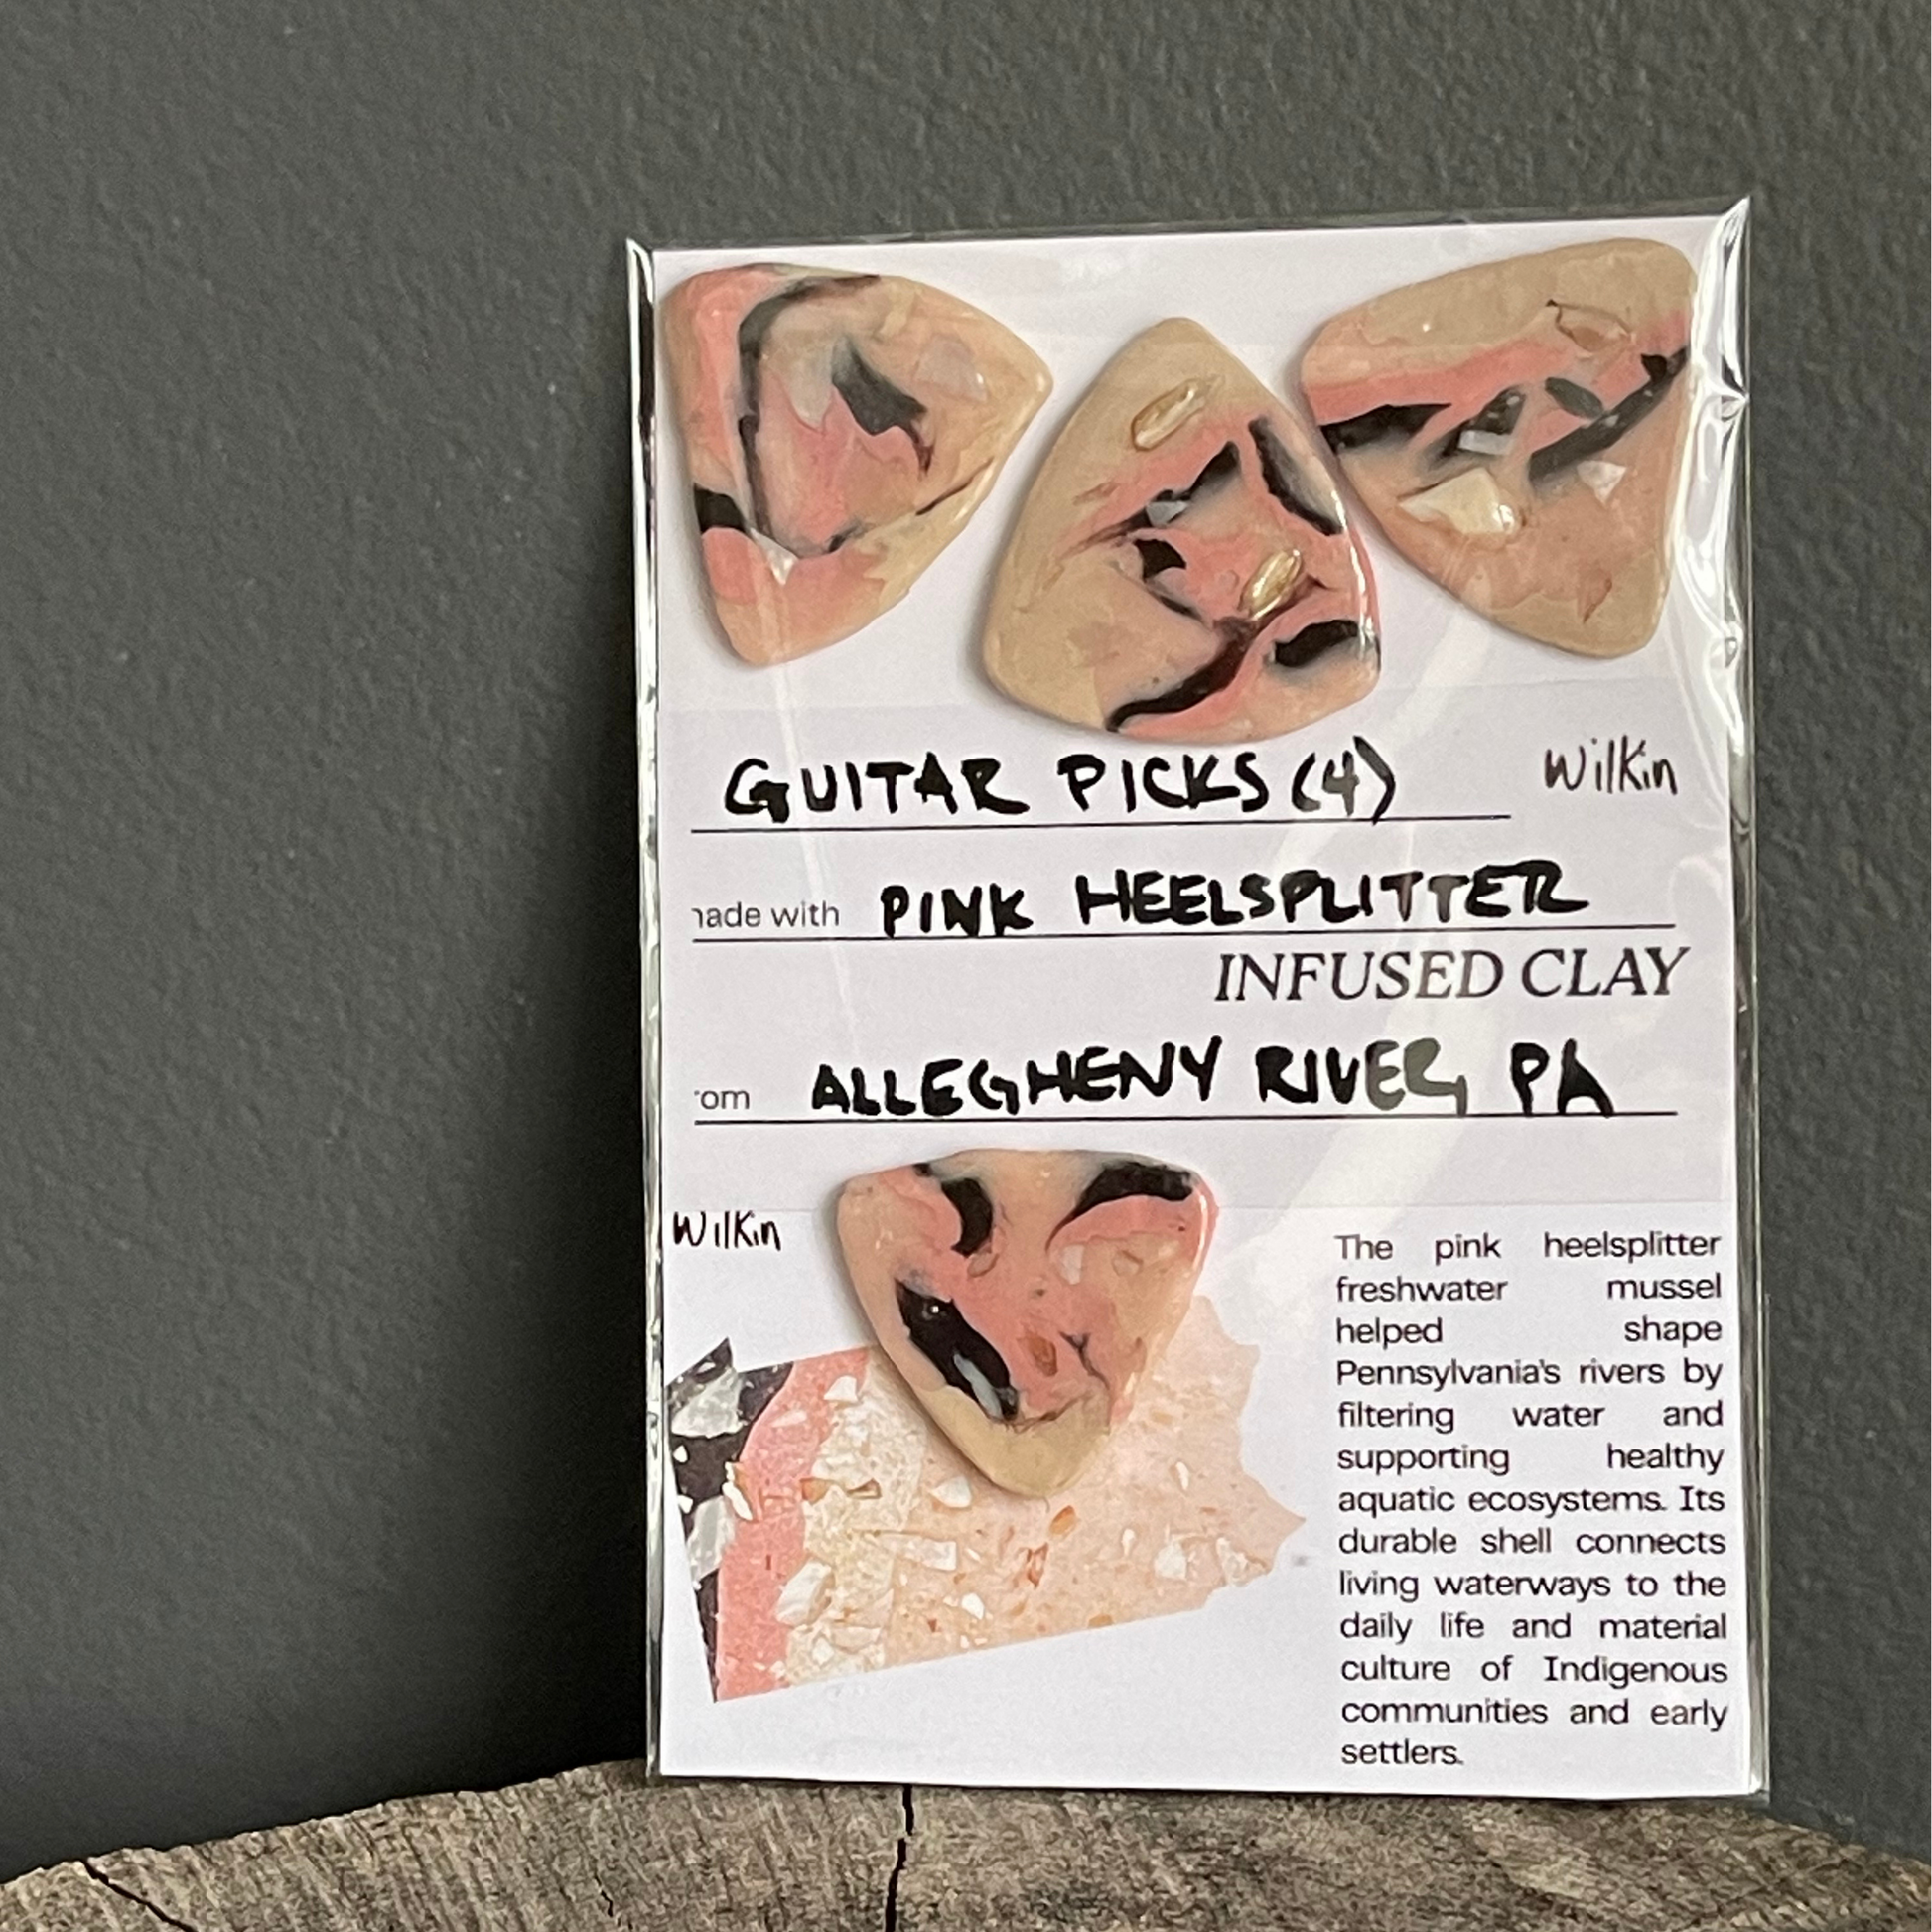 GUITAR PICKS (4) Wilkin
ade with PINK HEELSPLITTER
INFUSED CLAY
om ALLEGHENY RIVER, PA
Wilkin
The pink heelsplitter
freshwater mussel
helped shape
Pennsylvania's rivers by
filtering water and
supporting healthy
aquatic ecosystems. Its
durable shell connects
living waterways to the
daily life and material
culture of Indigenous
communities and early
settlers.